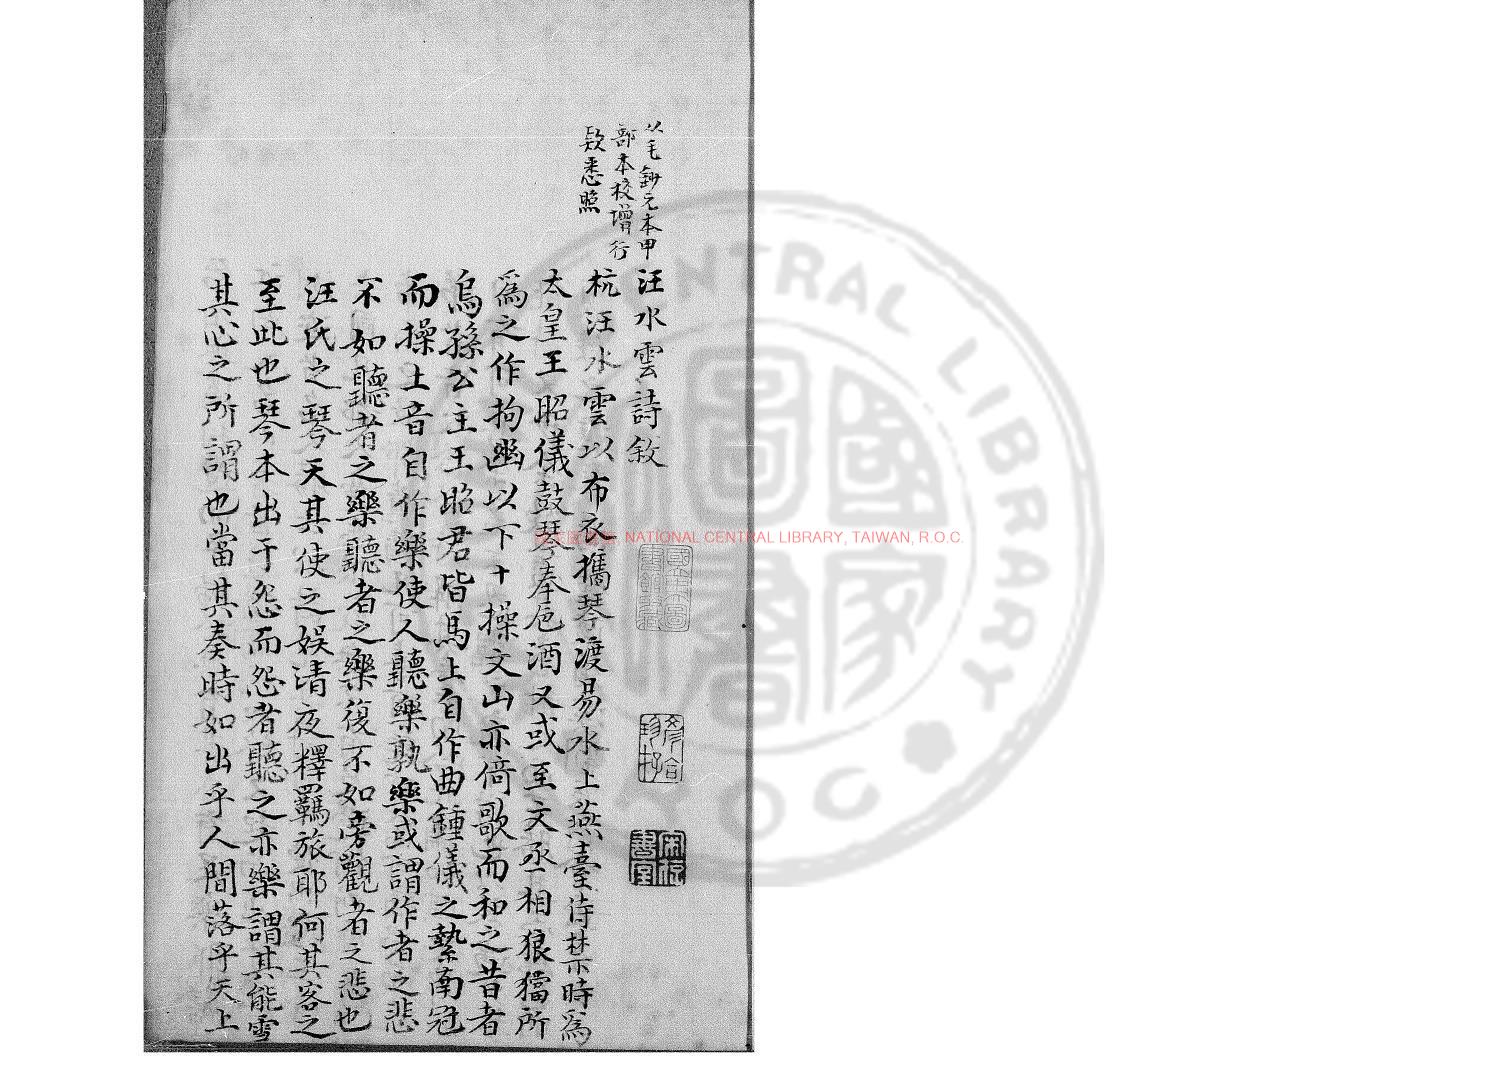 以毛鈔元本甲
部本校增行
款悉照
汪水雲詩敘
杭汪水雲以布衣攜琴渡易水上燕臺侍禁時爲
太皇王昭儀鼓琴奉卮酒又或至文丞相狼獧所
爲之作拘幽以下十操文山亦倚歌而和之昔者
烏孫公主王昭君皆馬上自作曲鍾儀之縶南冠
而操土音自作樂使人聽樂孰樂或謂作者之悲
不如聽者之樂聽者之樂復不如旁觀者之悲也
汪氏之琴天其使之娛清夜釋羈旅耶何其客之
至此也琴本出于怨而怨者聽之亦樂謂其能雪
其心之所謂也當其奏時如出乎人間落乎天上
國家圖書館, NATIONAL CENTRAL LIBRARY, TAIWAN, R.O.C.
CENTRAL LIBRARY
R O C
國家圖書